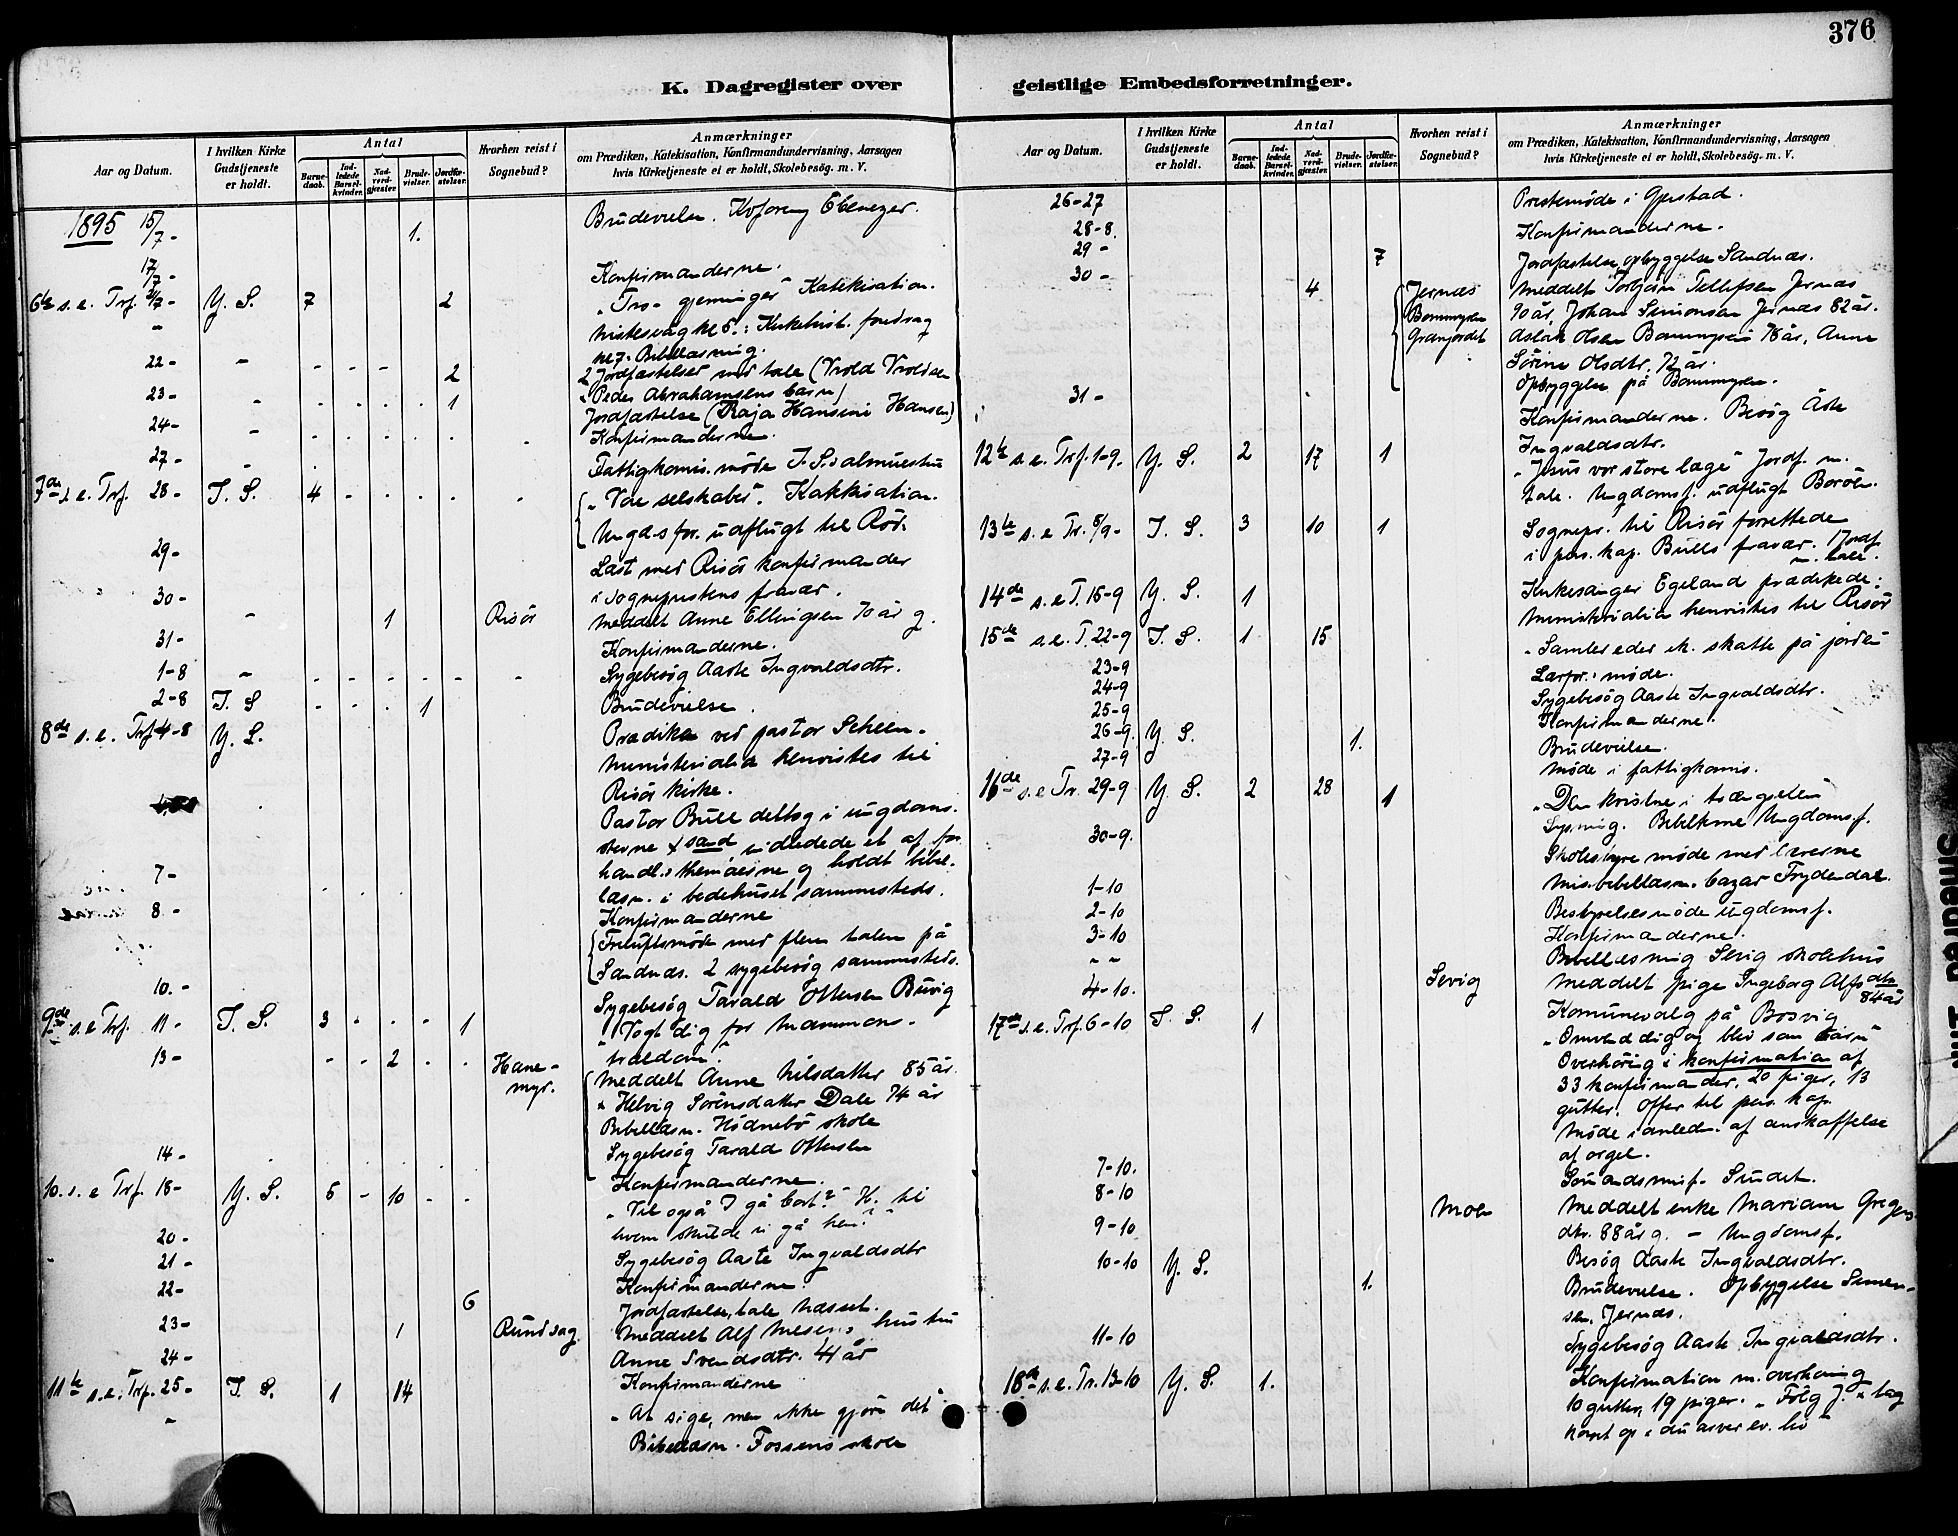 376
K. Dagregister over geistlige Embedsforretninger.
Aar og Datum.
I hvilken Kirke Gudstjeneste er holdt.
Antal
Barne-daab.
Ind-ledede Barsel-kvinder.
Nad-verd-gjester.
Brude-vielser.
Jordfæ-stelser.
Hvorhen reist i Sognebud?
Anmærkninger
om Prædiken, Katekisation, Konfirmandundervisning, Aarsagen
hvis Kirketjeneste ei er holdt, Skolebesøg. m. V.
1895 15/7 - 1. Brudevielse. Kvforeng Ebenezer.
17/7 - Konfirmanderne.
6te s. e. Trf. 21/7 - Y. S. 7 2 "Tro - gjerninger" Katekisation.
kl 5.: Kirkehist. foredrag
kl 7. Bibellæsning.
22 - 2 2 Jordfæstelser med tale (Vrold Vroldsen
Peder Abrahamsens barn)
23 - 1 Jordfæstelse (Raja Hansine Hansen)
24 - Konfirmanderne.
27 - Fattigkomis. møde
7de s. e. Trf. 28 - I. S. 4 "Vore selskaber". Katekisation.
Ungds for. udflugt til Rød.
29 - Læst med Risør konfirmander
i sogneprestens fravær.
30 - 1 Risør Meddelt Anne Ellingsen 70 år g.
31 - Konfirmanderne.
1-8 Sygebesøg Aaste Ingvaldsdtr.
2-8 I. S 1 Brudevielse.
8de s. e. Trf 4-8 Y. S. Prædiken ved pastor Scheen.
Ministerialia henvistes til
Risør kirke.
Pastor Bull deltog i ungdoms-
stevne indledede et af for
handl.s themaerne og holdt bibel.
7 - læsn. i bedehuset sammesteds.
8. - Konfirmanderne
Friluftsmøde med flere taler på
Sandnæs. 2 sygebesøg sammesteds.
10. - Sygebesøg Tarald Ottersen Buvig
9de s. e Trf. 11 - I. S. 3 1 "Vogt dig for Mammons-
trældom".
13 - 2 Hane-
myr. Meddelt Anne Nilsdatter 85 år.
x Helvig Sørensdatter Dale 74 år
Bibellæsn. Hødnebø skole
14 - Sygebesøg Tarald Ottersen
Konfirmanderne.
10. s. e Trf. 18 - Y. S. 6 10 "Vil også I gå bort?" H. til
hvem skulde vi gå hen?"
20 - Sygebesøg Aaste Ingvaldsdtr
21 - Konfirmanderne.
22 - 6 Jordfæstelse, tale
23 - 1 Rundsag. Meddelt Alf hustru
24 - Anne Svendsdtr. 41 år
Konfirmanderne
11te s. e. Trf. 25 - I. S. 1 14 "At sige, men ikke gjøre det"
Bibellæsn. Fossens skole
Aar og Datum.
I hvilken Kirke Gudstjeneste er holdt.
Antal
Barne-daab.
Ind-ledede Barsel-kvinder.
Nad-verd-gjester.
Brude-vielser.
Jordfæ-stelser.
Hvorhen reist i Sognebud?
Anmærkninger
om Prædiken, Katekisation, Konfirmandundervisning, Aarsagen
hvis Kirketjeneste ei er holdt, Skolebesøg. m. V.
26-27 Prestemøde i Gjerstad.
28-8. Konfirmanderne.
29 - 7 Jordfæstelse, opbyggelse Sandnæs.
30 - 4 Jernæs Meddelt Torbjørn Tellefsen Jernæs
Bommyren 90 år, Johan Simonsen Jernæs 82 år.
Granjordet Aslak Olsen Bommyren 78 år, Anne
Sørine Olsdtr. 72 år.
Opbyggelse på Bommyren.
31 - Konfirmanderne. Besøg Åste
Ingvaldsdtr.
12te s. e. Trf. 1-9. Y. S. 2 17 1 "Jesus vor store læge" Jordf. m.
tale. Ungdomsf. udflugt Borøen.
13te s. e Tr. 8/9 - I. S. 3 10 1 Sognepr. til Risør forrettede
i pers. kap. Bulls fravær. 1 Jordf
m. tale.
14de s. e T. 15-9 Y. S. 1 Kirkesanger Egeland prædikede:
Ministerialia henvistes til Risør
15de s. e. T. 22-9 I. S. 1 15 "Samler eder ik. skatte på jorden"
23-9 Lærfor. møde.
24-9 Sygebesøg Aaste Ingvaldsdtr.
25-9 Konfirmanderne.
26-9. Y. S. 1. Brudevielse.
27-9 Møde i fattigkomis.
16de s. e Tr. 29-9 Y. S. 2 28 1 "Den kristne i trængselen"
Lysning. Bibelkme Ungdomsf.
30-9. Skolestyre møde med lærerne
Mis. bibellæsn. bazar Frydendal.
1-10 Bestyrelsesmøde ungdomsf.
2-10 Konfirmanderne.
3-10 Bibellæsning Sevig skolehus
" "
4-10. Sevig Meddelt pige Ingeborg Alfsdtr
84 år
Komunevalg på Bosvig
17de s. e. Trf. 6-10 I. S. 1 "Omvend dig og bliv som barn"
Overhøring i konfirmation af
33 konfirmander, 20 piger, 13
gutter. Offer til pers. kap.
Møde i anledn. af anskaffelse
af orgel.
7-10.
8-10 Moen Meddelt enke Mariam Gregers
9-10 dtr. 88 år g. - Ungdomsf.
Besøg Aaste Ingvaldsdtr.
10-10 Y. S. 1. Brudevielse. Opbyggelse Simon-
sen, Jernæs.
11-10 Sygebesøg Aaste Ingvaldsdtr.
18de s. e. Tr. 13-10 Y. S. 1. Konfirmation m. overhøring
10 gutter, 19 piger. "Følg J. x tag
korset op x du arver ev. liv"